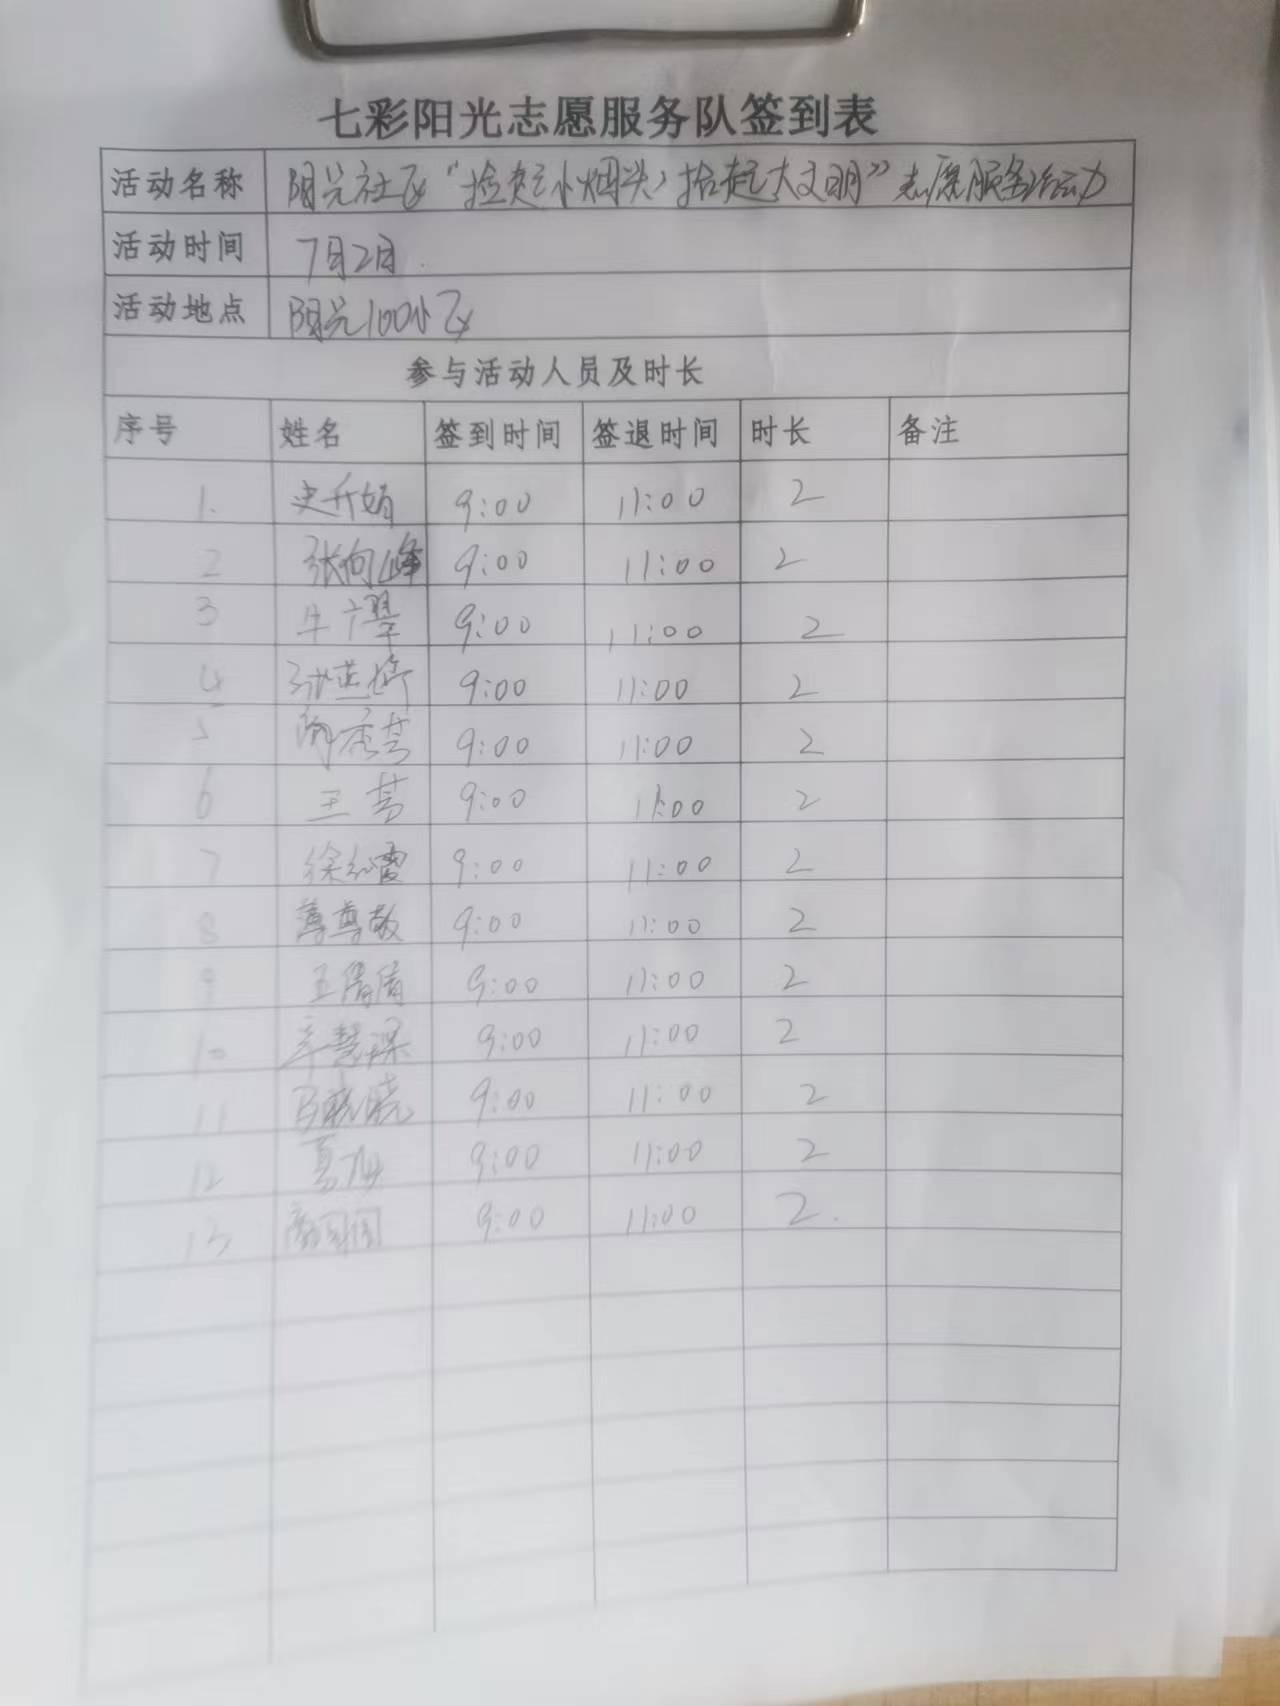 七彩阳光志愿服务队签到表
活动名称 阳光社区“捡起小烟头,拾起大文明”志愿服务活动
活动时间 7月2日.
活动地点 阳光100小区
参与活动人员及时长
序号 姓名 签到时间 签退时间 时长 备注
1. 史升娟 9:00 11:00 2
2 张向峰 9:00 11:00 2
3 牛广翠 9:00 11:00 2
4 9:00 11:00 2
5 9:00 11:00 2
6 王芳 9:00 11:00 2
7 徐红霞 9:00 11:00 2
8 尊敬 9:00 11:00 2
9 王倩倩 9:00 11:00 2
10 辛慧琛 9:00 11:00 2
11 马晓晓 9:00 11:00 2
12 夏旭 9:00 11:00 2
13 9:00 11:00 2.